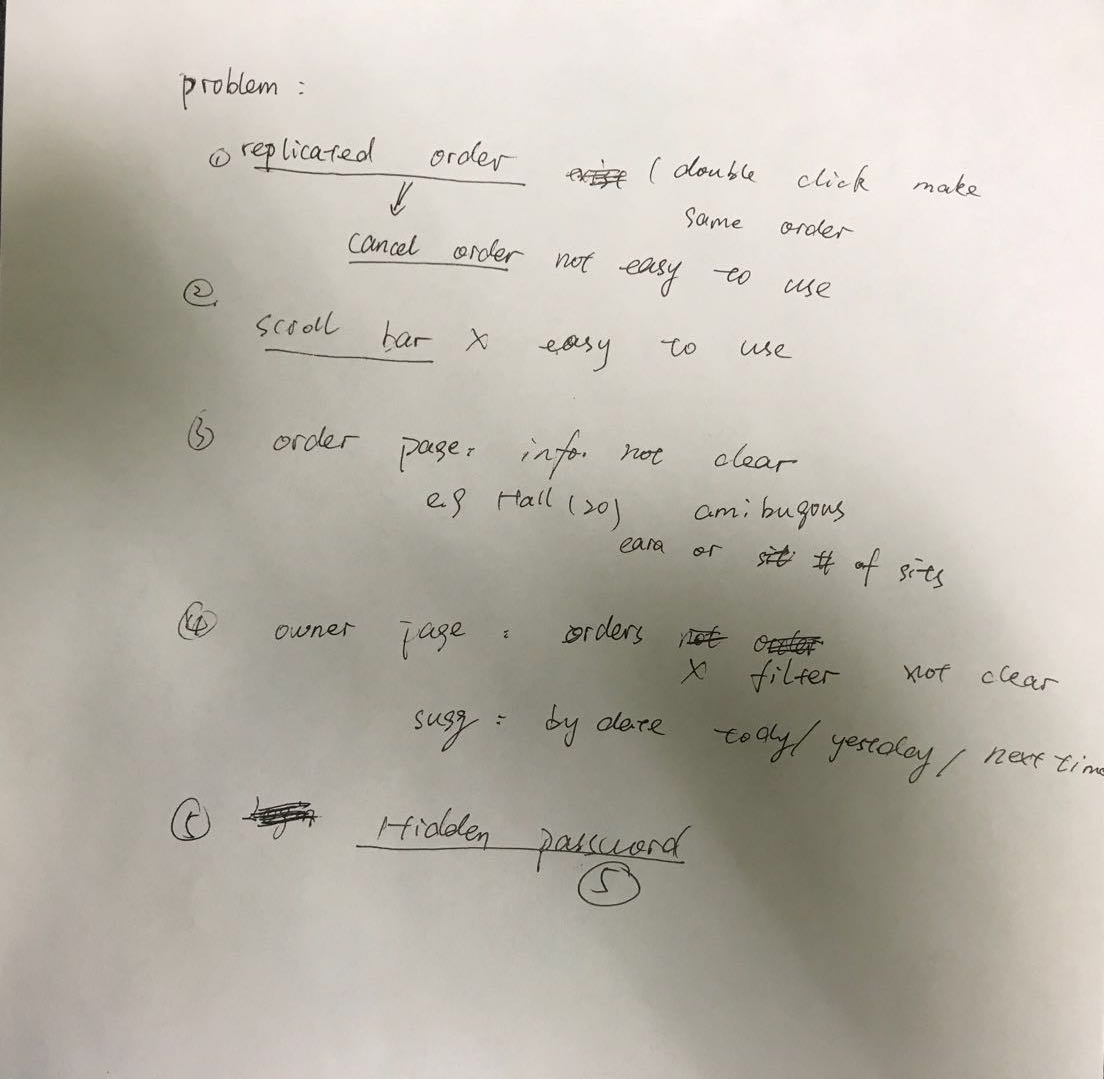 problem :
① replicated order exist ( double click make
same order
cancel order not easy to use
②
scroll bar x easy to use
③ order page: info. not clear
e.g Hall (20) amibugous
eara or sit # of sits
④ owner page : orders not order
x filter not clear
sugg : by date tody / yesteday / next time
⑤ login Hidden password
5